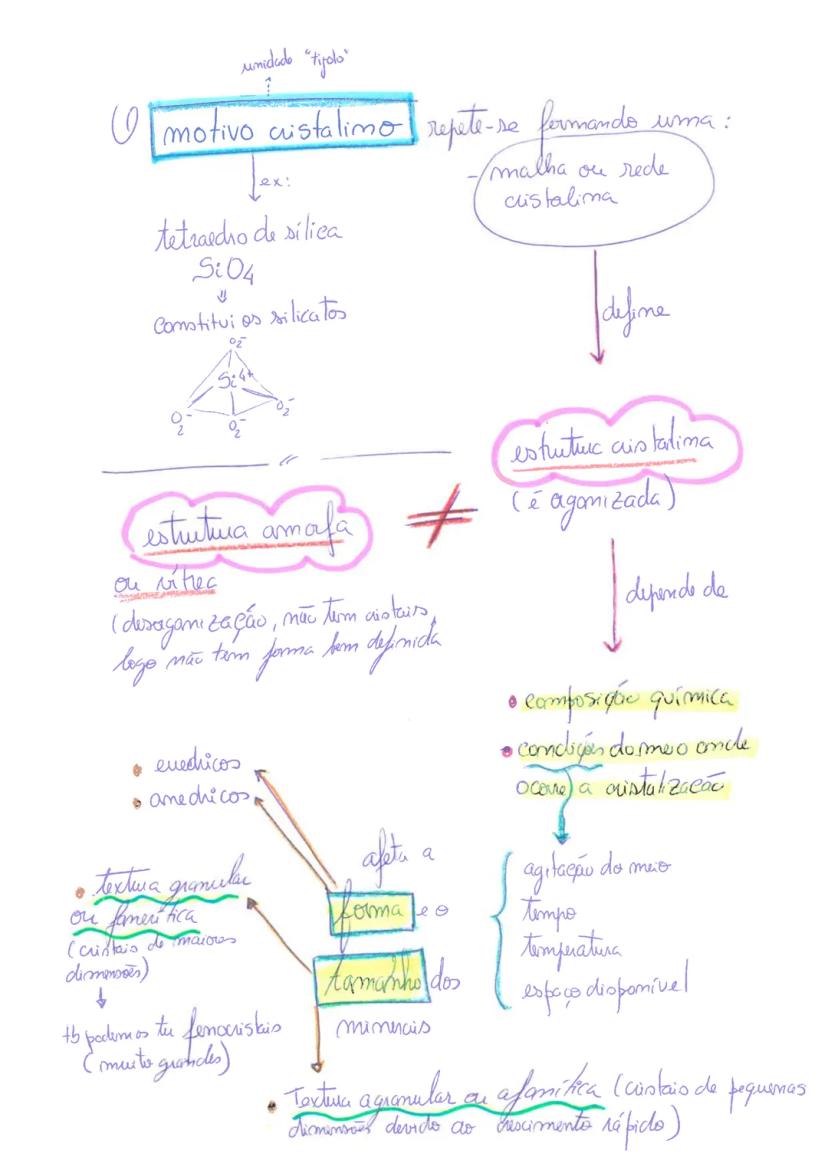 unidade "tijolo"
motivo cristalino repete-se formando uma:
- malha ou rede
cristalina
ex:
tetraedro de sílica
SiO4
⇓
constitui os silicatos
O2-
Si4+
O2- O2- O2-
define
estrutura cristalina
(é organizada)
≠
estrutura amorfa
ou vítrea
(desorganização, não tem cristais,
logo não tem forma bem definida
depende de
• composição química
• condições do meio onde
ocorre a cristalização
agitação do meio
tempo
temperatura
espaço disponível
afeta a
forma e o
tamanho dos
minerais
• euédricos
• anédricos
• textura granular
ou fanerítica
(cristais de maiores
dimensões)
tb podemos ter fenocristais
(muito grandes)
• Textura agranular ou afanítica (cristais de pequenas
dimensões devido ao crescimento rápido)